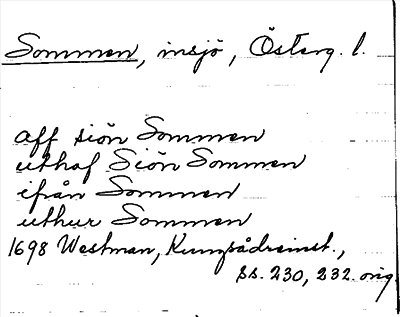 Sommen, insjö, Österg. l.
aff siön Sommen
uthaf Siön Sommen
ifrån Sommen
uthur Sommen
1698 Westman, Kungsådreinst.,
ss. 230, 232 orig.